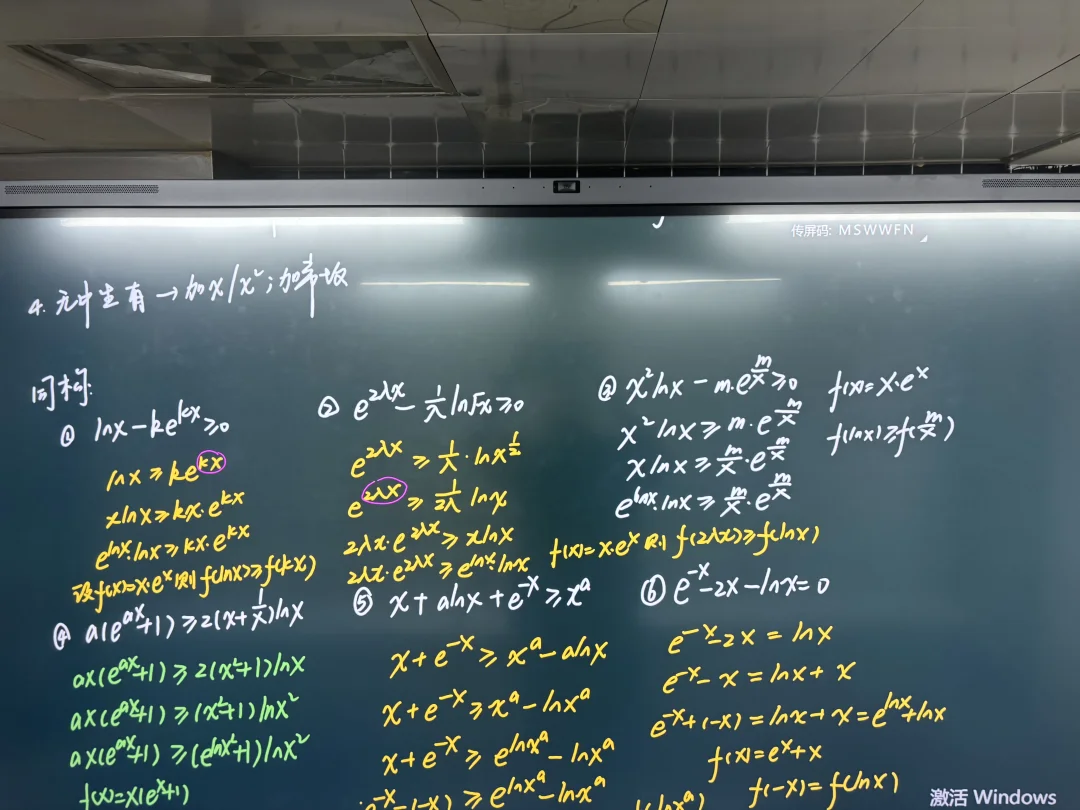 传屏码: MSWWFN
4. 无中生有 → 加x/x²; 加常数
同构:
① lnx - ke^{kx} ≥ 0
lnx ≥ ke^{kx}
xlnx ≥ kx·e^{kx}
e^{lnx}·lnx ≥ kx·e^{kx}
设f(x)=x·e^x 则 f(lnx) ≥ f(kx)
② e^{2λx} - \frac{1}{λ}ln√x ≥ 0
e^{2λx} ≥ \frac{1}{λ}·lnx^{\frac{1}{2}}
e^{2λx} ≥ \frac{1}{2λ}lnx
2λx·e^{2λx} ≥ xlnx
2λx·e^{2λx} ≥ e^{lnx}·lnx
f(x)=x·e^x 则 f(2λx) ≥ f(lnx)
③ x²lnx - m·e^{\frac{m}{x}} ≥ 0
x²lnx ≥ m·e^{\frac{m}{x}}
xlnx ≥ \frac{m}{x}·e^{\frac{m}{x}}
e^{lnx}·lnx ≥ \frac{m}{x}·e^{\frac{m}{x}}
f(x)=x·e^x
f(lnx) ≥ f(\frac{m}{x})
④ a(e^{ax}+1) ≥ 2(x+\frac{1}{x})lnx
ax(e^{ax}+1) ≥ 2(x²+1)lnx
ax(e^{ax}+1) ≥ (x²+1)lnx²
ax(e^{ax}+1) ≥ (e^{lnx²}+1)lnx²
f(x)=x(e^x+1)
⑤ x+alnx+e^{-x} ≥ x^a
x+e^{-x} ≥ x^a-alnx
x+e^{-x} ≥ x^a-lnx^a
x+e^{-x} ≥ e^{lnx^a}-lnx^a
e^{-x}-(-x) ≥ e^{lnx^a}-lnx^a
(lnx^a)
⑥ e^{-x}-2x-lnx=0
e^{-x}-2x=lnx
e^{-x}-x=lnx+x
e^{-x}+(-x)=lnx+x=e^{lnx}+lnx
f(x)=e^x+x
f(-x)=f(lnx)
激活 Windows